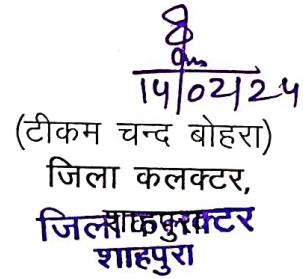 14/02/24
(टीकम चन्द बोहरा)
जिला कलक्टर,
शाहपुरा
जिला कलक्टर
शाहपुरा